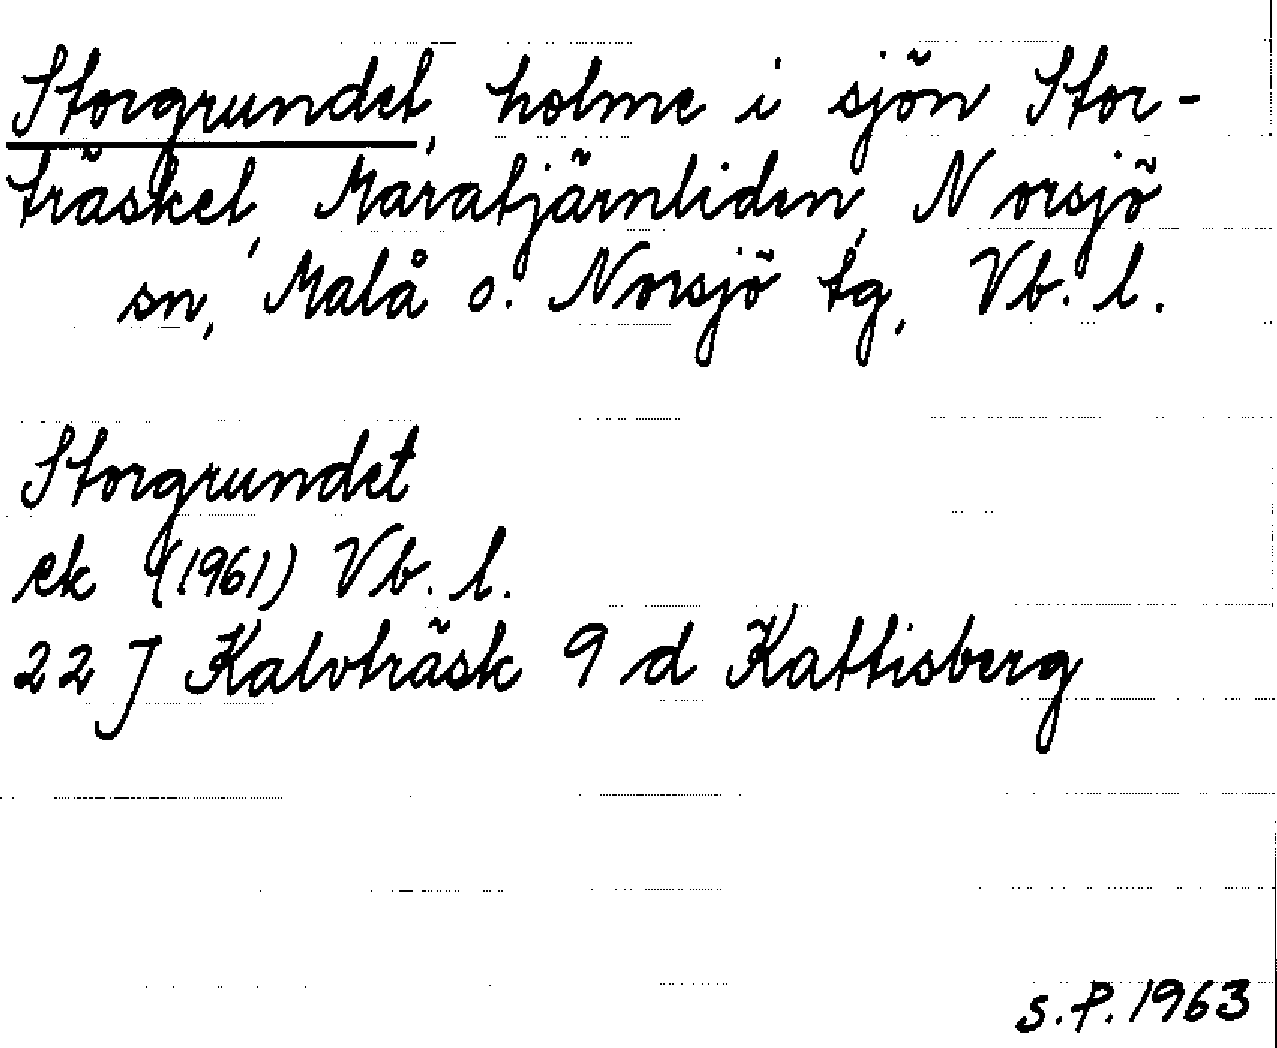 Storgrundet, holme i sjön Stor-
träsket, Maratjärnliden, Norsjö
sn, Malå o. Norsjö tg, Vb. l.
Storgrundet
ek (1961) Vb. l.
22 J Kalvträsk 9 d Kattisberg
S.P. 1963